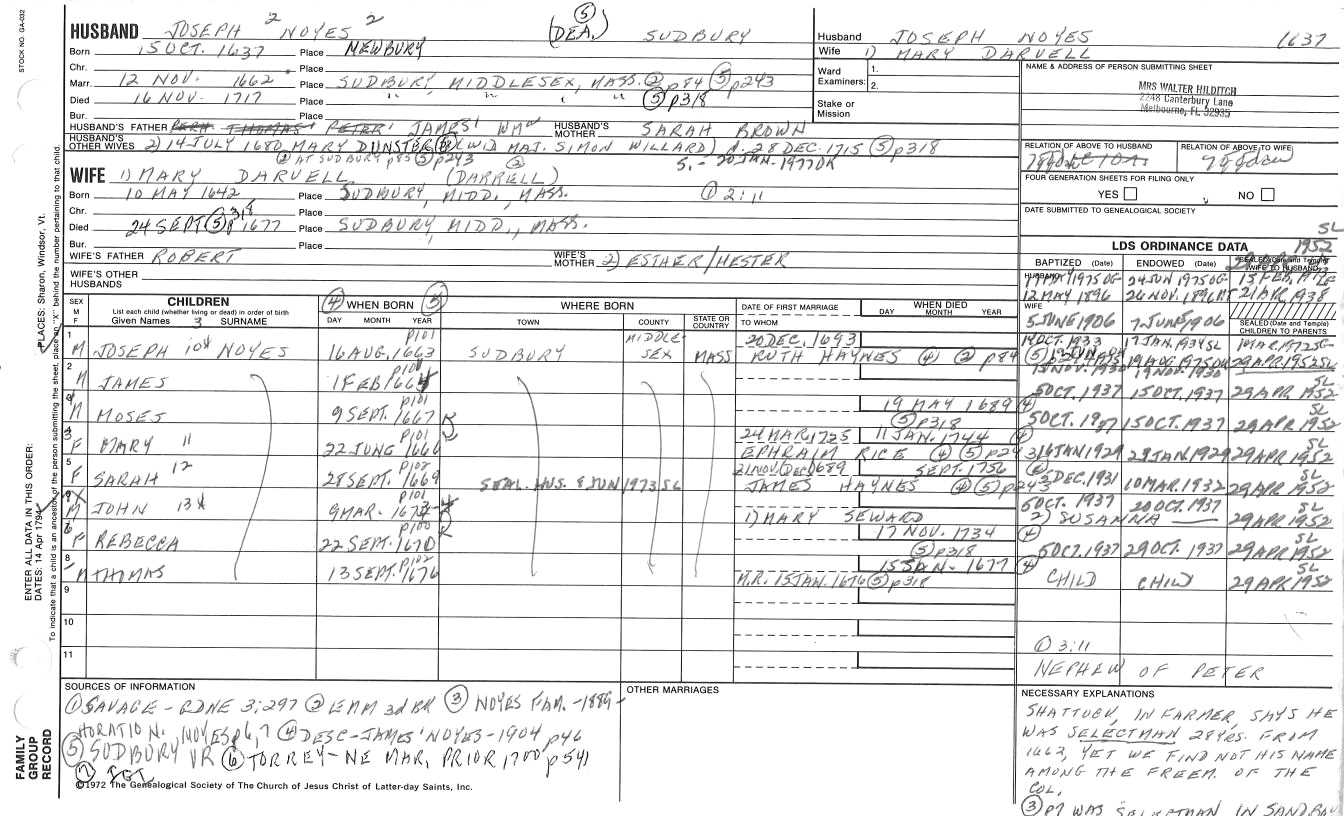 STOCK NO. GA-032
HUSBAND JOSEPH 2 NOYES 2 (DEA.) ⑤ SUDBURY
Born 15 OCT. 1637 Place NEWBURY
Chr. Place
Marr. 12 NOV. 1662 Place SUDBURY, MIDDLESEX, MASS. ② p84 ⑤ p243
Died 16 NOV. 1717 Place " " " " ⑤ p318
Bur. Place
HUSBAND'S FATHER PETER JAMES' WM HUSBAND'S MOTHER SARAH BROWN
HUSBAND'S OTHER WIVES 2) 14 JULY 1680 MARY DUNSTER (WID MAJ. SIMON WILLARD) d. 28 DEC. 1715 ⑤ p318
② AT SUDBURY p85 ⑤ p243 ② S. - 20 JAN. 1977 OK
WIFE 1) MARY DARVELL (DARRELL)
Born 10 MAY 1642 Place SUDBURY, MIDD, MASS. ① 2:11
Chr. Place
Died 24 SEPT ⑤ p 318 1677 Place SUDBURY, MIDD., MASS.
Bur. Place
WIFE'S FATHER ROBERT WIFE'S MOTHER 2) ESTHER/HESTER
WIFE'S OTHER HUSBANDS
Husband JOSEPH NOYES 1637
Wife 1) MARY DARVELL
Ward Examiners: 1.
2.
Stake or Mission
NAME & ADDRESS OF PERSON SUBMITTING SHEET
MRS WALTER HILDITCH
2248 Canterbury Lane
Melbourne, FL 32935
RELATION OF ABOVE TO HUSBAND RELATION OF ABOVE TO WIFE
FOUR GENERATION SHEETS FOR FILING ONLY
YES NO
DATE SUBMITTED TO GENEALOGICAL SOCIETY
LDS ORDINANCE DATA
SL
1952
BAPTIZED (Date) ENDOWED (Date) SEALED (Date and Temple) WIFE TO HUSBAND
HUSBAND MAY 1975 OG 24 JUN 1975 OG 15 FEB.
12 MAY 1896 26 NOV. 1896 21 APR 1938
WIFE
5 JUNE 1906 7 JUNE 1906 SEALED (Date and Temple) CHILDREN TO PARENTS
SEX M F CHILDREN List each child (whether living or dead) in order of birth Given Names SURNAME
④ WHEN BORN ⑤ DAY MONTH YEAR
WHERE BORN TOWN COUNTY STATE OR COUNTRY
DATE OF FIRST MARRIAGE TO WHOM
WHEN DIED DAY MONTH YEAR
1 M JOSEPH 10* NOYES 16 AUG. 1663 p101 SUDBURY MIDDLESEX MASS 20 DEC. 1693 RUTH HAYNES ④ ② p84
14 OCT. 1933 17 JAN. 1934 SL 29 APR. 1952 SL
2 M JAMES 1 FEB 1664 p101
5 OCT. 1937 15 OCT. 1937 29 APR 1952 SL
M MOSES 9 SEPT. 1667 p101 19 MAY 1689 ④ ⑤ p318
5 OCT. 1937 15 OCT. 1937 29 APR 1952 SL
F MARY 11 22 JUNG 1666 p101 24 MAR. 1725 11 JAN. 1744 ④ EPHRAIM RICE ④ ⑤ p243
16 JAN 1929 29 JAN. 1929 29 APR 1952 SL
5 F SARAH 12 28 SEPT. 1669 p102 SEAL. HUS. 8 JUN 1973 SL 21 NOV (DEC) 1689 SEPT. 1756 JAMES HAYNES ④ ⑤ p243
DEC. 1931 10 MAR. 1932 29 APR 1952 SL
M JOHN 13* 9 MAR. 1674 p101 1) MARY SEWARD
6 OCT. 1937 20 OCT. 1937 29 APR 1952 SL
2) SUSANNA
F REBECCA 22 SEPT. 1670 p100 17 NOV. 1734 ④ ⑤ p318
5 OCT. 1937 29 OCT. 1937 29 APR 1952 SL
8 M THOMAS 13 SEPT. 1676 p102 15 JAN. 1677 ④ M.R. 15 JAN. 1676 ⑤ p318
CHILD CHILD 29 APR 1952 SL
9
10
11
① 3:11
NEPHEW OF PETER
SOURCES OF INFORMATION
① SAVAGE - GDNE 3:297 ② EMM 3d BR ③ NOYES FAM. - 1889 -
HORATIO N. NOYES p6,7 ④ DESC - JAMES' NOYES - 1904 p46
⑤ SUDBURY VR ⑥ TORREY - NE MAR. PRIOR 1700 p541
⑦ IGI
©1972 The Genealogical Society of The Church of Jesus Christ of Latter-day Saints, Inc.
OTHER MARRIAGES
NECESSARY EXPLANATIONS
SHATTUCK, IN FARMER, SAYS HE
WAS SELECTMAN 28 YRS. FROM
1662, YET WE FIND NOT HIS NAME
AMONG THE FREEM. OF THE
COL.
③ p7 WAS SELECTMAN IN
ENTER ALL DATA IN THIS ORDER:
DATES: 14 Apr 1794
PLACES: Sharon, Windsor, Vt.
To indicate that a child is an ancestor of the person submitting the sheet, place an "X" behind the number pertaining to that child.
FAMILY GROUP RECORD